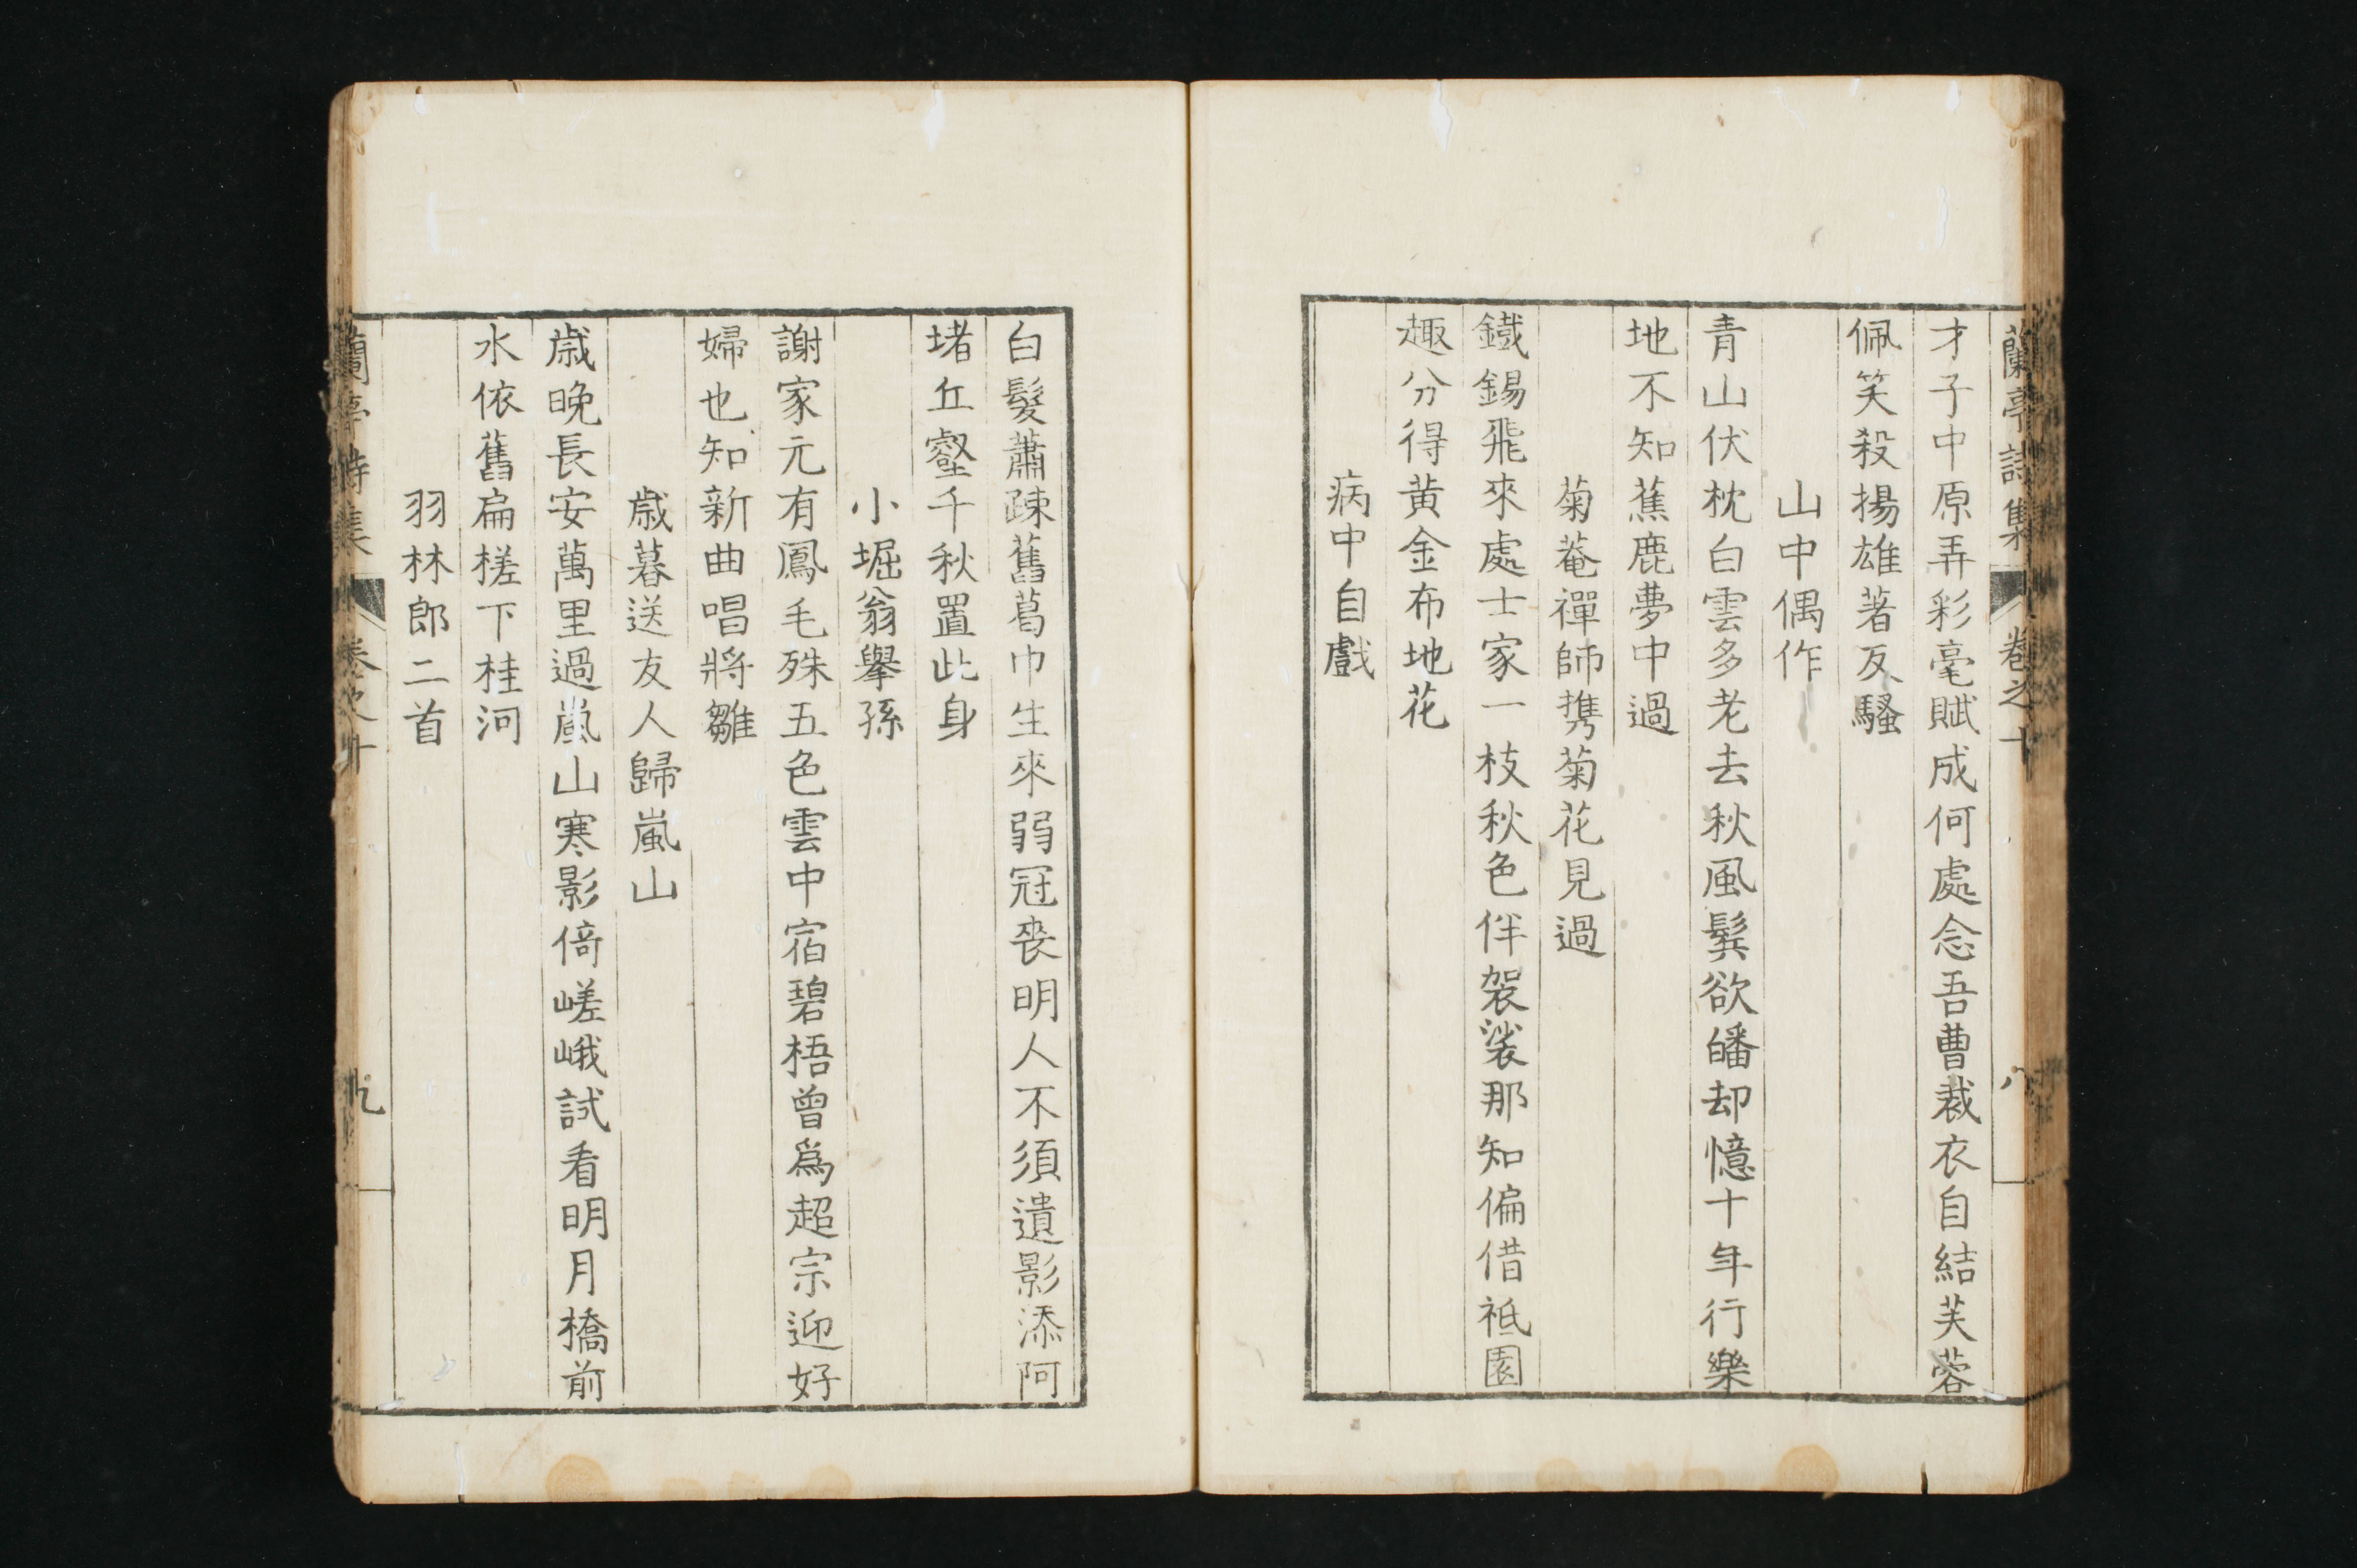 蘭亭詩集 卷之十 八
才子中原弄彩毫賦成何處念吾曹裁衣自結芙蓉
佩笑殺揚雄著反騷
山中偶作
青山伏枕白雲多老去秋風鬂欲皤却憶十年行樂
地不知蕉鹿夢中過
菊菴禪師携菊花見過
鐡錫飛來處士家一枝秋色伴袈裟那知偏借祗園
趣分得黄金布地花
病中自戲
白髮蕭疎舊葛巾生來弱冠喪明人不須遺影添阿
堵丘壑千秋置此身
小堀翁擧孫
謝家元有鳳毛殊五色雲中宿碧梧曾爲超宗迎好
婦也知新曲唱將雛
歳暮送友人歸嵐山
歳晩長安萬里過嵐山寒影倚嵯峨試看明月橋前
水依舊扁槎下桂河
羽林郎二首
蘭亭詩集 卷之十 九